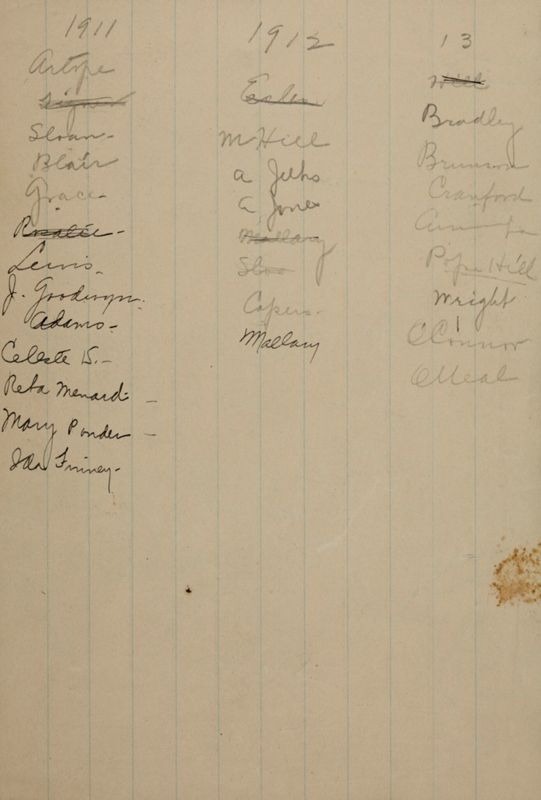 1911
Artope
Sloan -
Blair
Grace -
Rosalie -
Lewis -
J. Goodwyn.
Adams -
Celeste K. -
Reta Menard -
Mary Ponder -
Ida Finney -
1912
Esler
M Hill
a
a Jones
Mallary
Sloo
Capers -
Mallary
13
Will
Bradley
Brunson
Cranford
Ann
Pope Hill
Wright
OConnor
ONeal